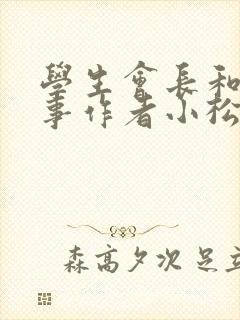 學生會長和
事作者小松
森高夕次 足立